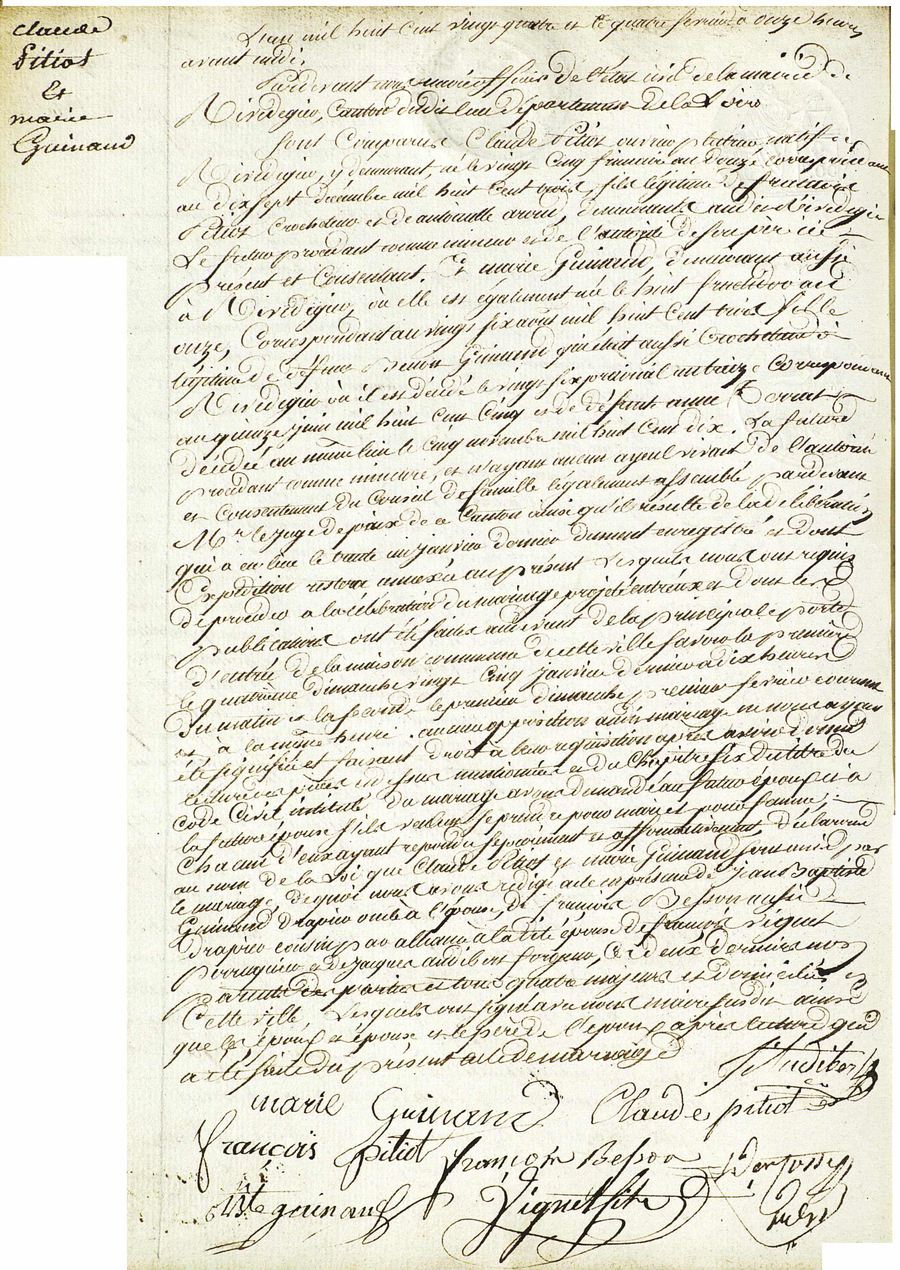 Claude
Pitiot
Et
marie
Guinand
L'an mil huit cent vingt quatre et le quatre fevrier à onze heures
avant midi.
Pardevant nous maire officier de l'état civil de la mairie de
Rivedegier, Canton dudit lieu département de la Loire
Sont Comparus Claude Pitiot ouvrier platrier natif de
Rivedegier, y demeurant, né le vingt cinq frimaire an douze correspondant
au dix sept décembre mil huit cent trois, fils légitime de francois
Pitiot Crocheteur et de antoinette demeurants audit Rivedegier
Le futur procédant comme mineur et de l'autorité de son père ici
présent et Consentant. Et marie Guinand, demeurant aussi
à Rivedegier, où elle est également née le huit fructidor an
onze, Correspondant au vingt six aout mil huit cent trois fille
légitime de défunt Benoit Guinand qui était aussi Crocheteur à
Rivedegier où il est décédé le vingt six prairial an treize Correspondant
au quinze juin mil huit cent cinq et de défunte anne
décédée au même lieu le cinq novembre mil huit cent dix. La future
procédant comme mineure, et n'ayant aucun ayeul vivant de l'autorité
et Consentement du Conseil de famille légalement assemblé pardevant
Mr. le Juge de paix de ce Canton ainsi qu'il résulte de la délibération
qui a eu lieu le trente un janvier dernier dument enregistré et dont
Expédition restera annexée au présent Lesquels nous ont requis
de procéder a la célébration du mariage projeté entr'eux et dont les
publications ont été faites audevant de la principale porte
d'entrée de la maison commune de cette ville savoir la première
le quatrieme dimanche vingt cinq janvier dernier à dix heures
du matin et la seconde le premier dimanche premier fevrier courant
et a la même heure. aucune opposition audit mariage ne nous ayant
été signifiée et faisant droit à leur réquisition après avoir donné
lecture des pièces ci dessus mentionnées et du Chapitre six du titre du
code Civil intitulé Du mariage avons demandé au futur époux et à
la future épouse s'ils veulent se prendre pour mari et pour femme,
Chacun d'eux ayant répondu séparément et affirmativement, déclarons
au nom de la Loi que Claude Pitiot et marie Guinand sont unis par
le mariage, De quoi nous avons rédigé acte en présence de jean Baptiste
Guinand Drapier oncle à l'épouse, de francois Besson aussi
Drapier cousin par alliance à ladite épouse de francois Viguet
perruquier et de Jacques audibert forgeur, Ces deux derniers non
parents des parties et tous quatre majeurs et domiciliés en
Cette ville Lesquels ont signé avec nous maire susdit ainsi
que les époux et épouse et le père de l'époux après lecture qui
a été faite du présent acte de mariage
J. Audibert
marie Guinand Claude pitiot
françois pitiot françois Besson
Bte guinand Viguet